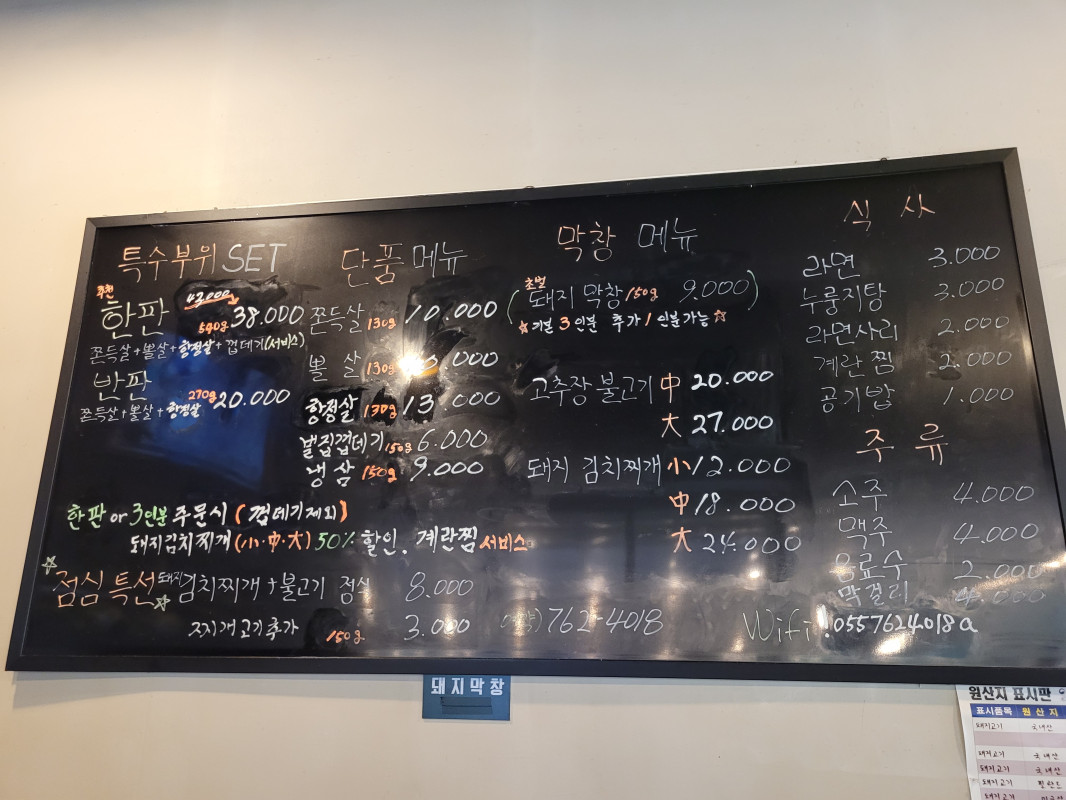 특수부위 SET
추천
한판 43.000
540g 38.000
쫀득살+뽈살+항정살+껍데기(서비스)
반판 270g 20.000
쫀득살+뽈살+항정살
단품 메뉴
쫀득살 130g 10.000
뽈살 130g .000
항정살 130g 13.000
벌집껍데기 150g 6.000
냉삼 150g 9.000
한판 or 3인분 주문시 (껍데기제외)
돼지김치찌개 (小·中·大) 50% 할인. 계란찜 서비스
점심 특선 돼지김치찌개+불고기 정식 8.000
찌개고기추가 150g 3.000
막창 메뉴
초벌
(돼지 막창 150g 9.000)
☆기본 3인분 추가 1인분가능☆
고추장 불고기 中 20.000
大 27.000
돼지 김치찌개 小 12.000
中 18.000
大 24.000
762-4018
식사
라면 3.000
누룽지탕 3.000
라면사리 2.000
계란찜 2.000
공기밥 1.000
주류
소주 4.000
맥주 4.000
음료수 2.000
막걸리 4.000
Wifi : 0557624018a
돼지막창
원산지 표시판
표시품목 원산지
돼지고기 국내산
돼지고기 국내산
돼지고기 국내산
돼지고기
돼지고기